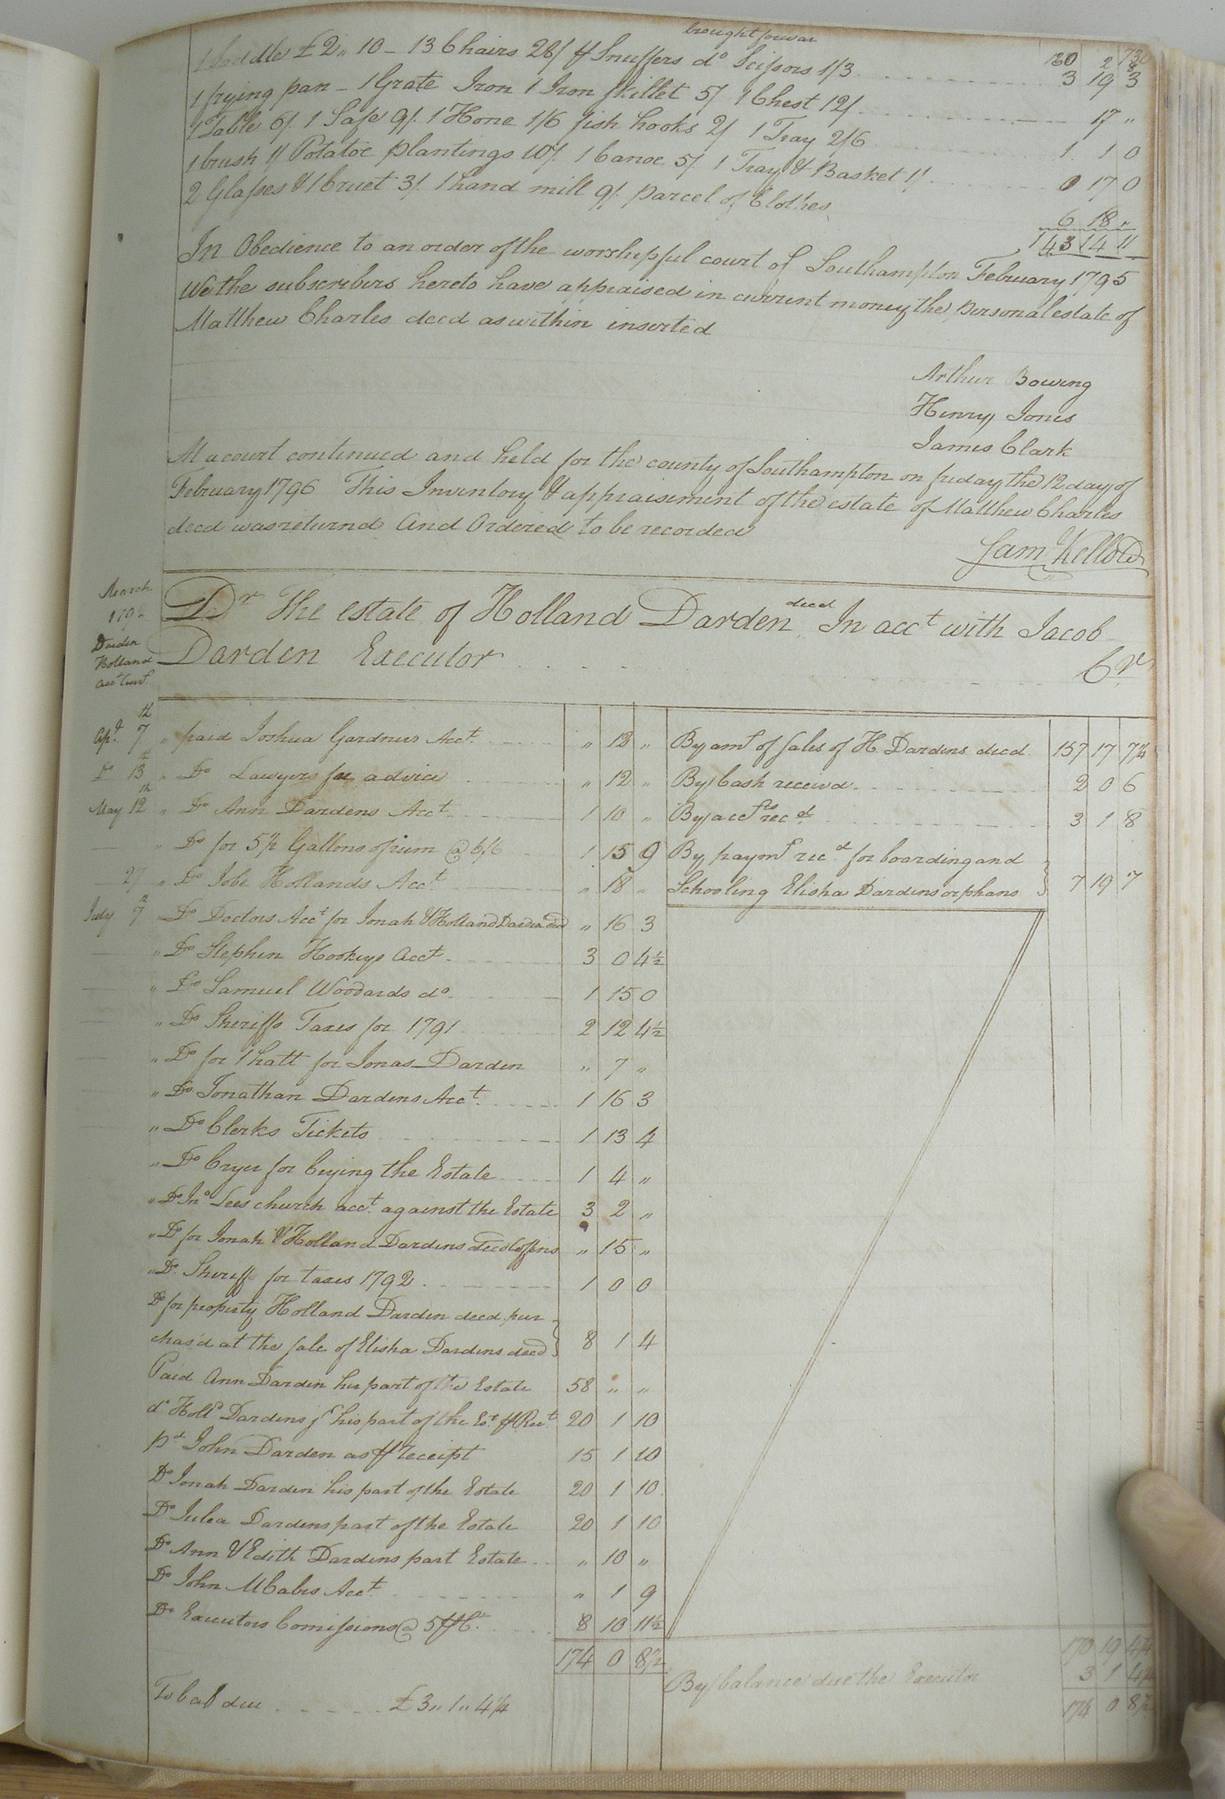 brought forwar
1 Saddle £2" 10 - 13 Chairs 28/ pr Snuffers do Scissors 1/3 3 19 3
1 frying pan - 1 Grate Iron 1 Iron skillet 5/ 1 Chest 12/ 17 "
1 Table 6/ 1 Safe 9/ 1 Hone 1/6 fish hooks 2/ 1 Tray 2/6 1 1 0
1 brush 1/ Potatoe plantings 10/ 1 Canoe 5/ 1 Tray & Basket 1/ 0 17 0
2 Glasses & 1 Cruet 3/ 1 hand mill 9/ parcel of Clothes 6 18 "
143 14 11
In Obedience to an order of the worshipful court of Southampton February 1795
We the subscribers hereto have appraised in current money the personal estate of
Matthew Charles deced as within inserted
Arthur Bowing
Henry Jones
James Clark
At a court continued and held for the county of Southampton on friday the 12 day of
February 1796 This Inventory & appraisement of the estate of Matthew Charles
deced was returnd And Ordered to be recorded
Sam Kello CC
March
Darden
Holland
acct Curt
Dr The estate of Holland Darden deced In acct with Jacob
Darden Executor Cr
Apl 7th " paid Joshua Gardners Acct " 12 " By amt of sales of H Dardens deced 157 17 7¾
Do 13 " Do Lawyers fee advice " 12 " By Cash receivd 2 0 6
May 12th " Do Ann Dardens Acct 1 10 " By accts recd 3 1 8
" Do for 5½ Gallons of rum @ 6/6 1 15 9 By paymt recd for boarding and
27 " Do Jobe Hollands Acct " 18 " Schooling Elisha Dardens orphans 7 19 7
July 7 Do Doctors Acct for Jonah & Holland Darden deced " 16 3
" Do Stephen Hookeys Acct 3 0 4½
" Do Samuel Woodards do 1 15 0
" Do Sheriffs Taxes for 1791 2 12 4½
" Do for 1 hatt for Jonas Darden " 7 "
" Do Jonathan Dardens Acct 1 16 3
" Do Clerks Tickets 1 13 4
" Do Cryer for Crying the Estate 1 4 "
" Do Jno Lees church acct against the Estate 3 2 "
" Do for Jonah & Holland Dardens deced Coffins " 15 "
" Do Sheriff for taxes 1792 1 0 0
Do for property Holland Darden deced pur
chas'd at the sale of Elisha Dardens deced 8 1 4
Paid Ann Darden her part of the Estate 58 " "
do Holld Dardens his part of the Est pr Rect 20 1 10
pd John Darden as pr receipt 15 1 10
Do Jonah Darden his part of the Estate 20 1 10
Do Julea Dardens part of the Estate 20 1 10
Do Ann & Edith Dardens part Estate " 10 "
Do John McCabes Acct " 1 9
Do Executors Comissions @ 5 prCt 8 10 11½
174 0 8½ 170 19 4¼
By balance due the Executor 3 1 4¼
To bal due £3"1"4¼ 174 0 8½